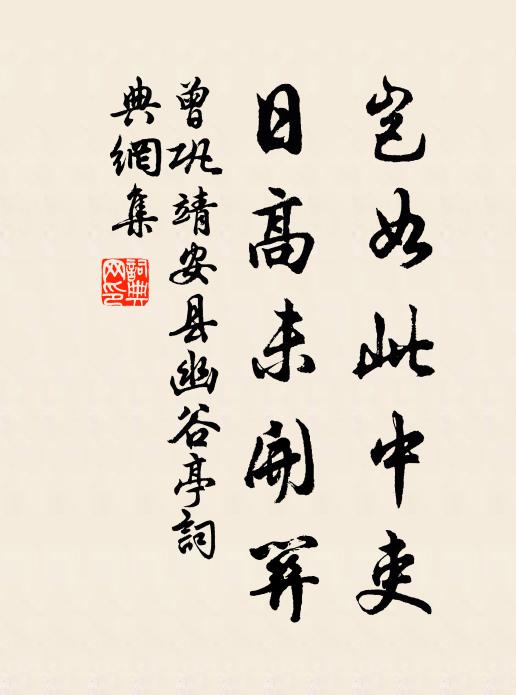 岂如此中吏
日高未开关
曾巩靖安县幽谷亭詞
典網集
詞典网印